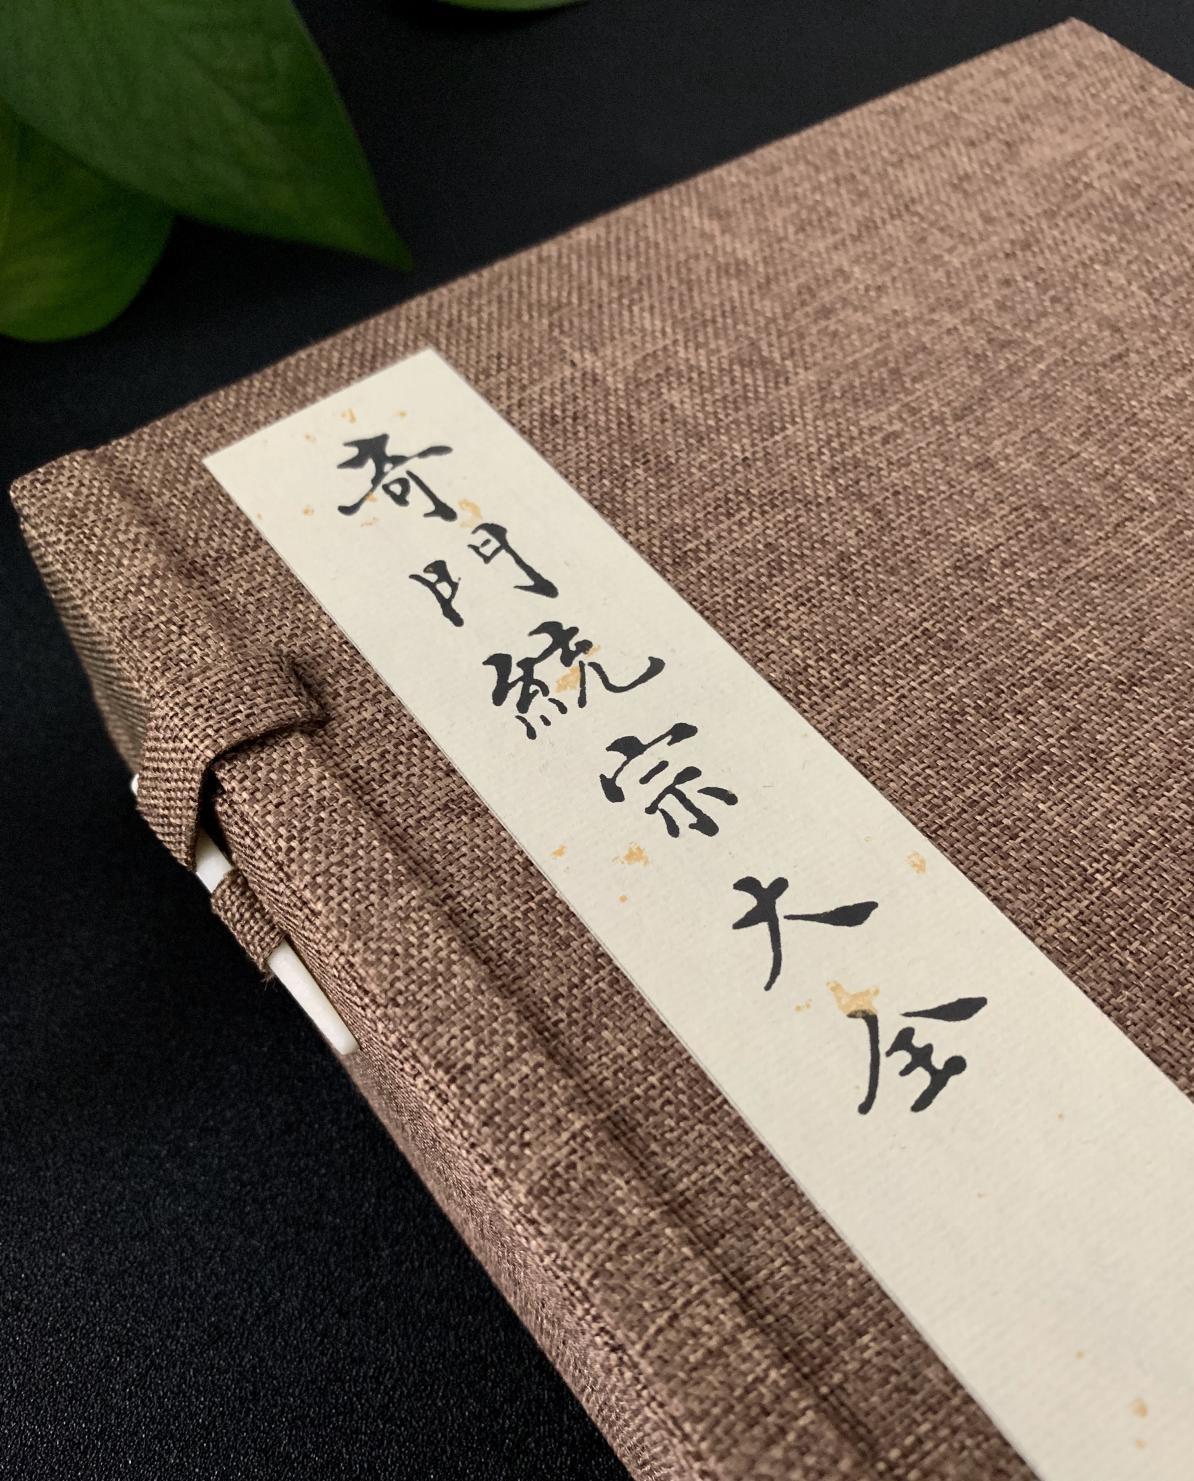 奇門統宗大全